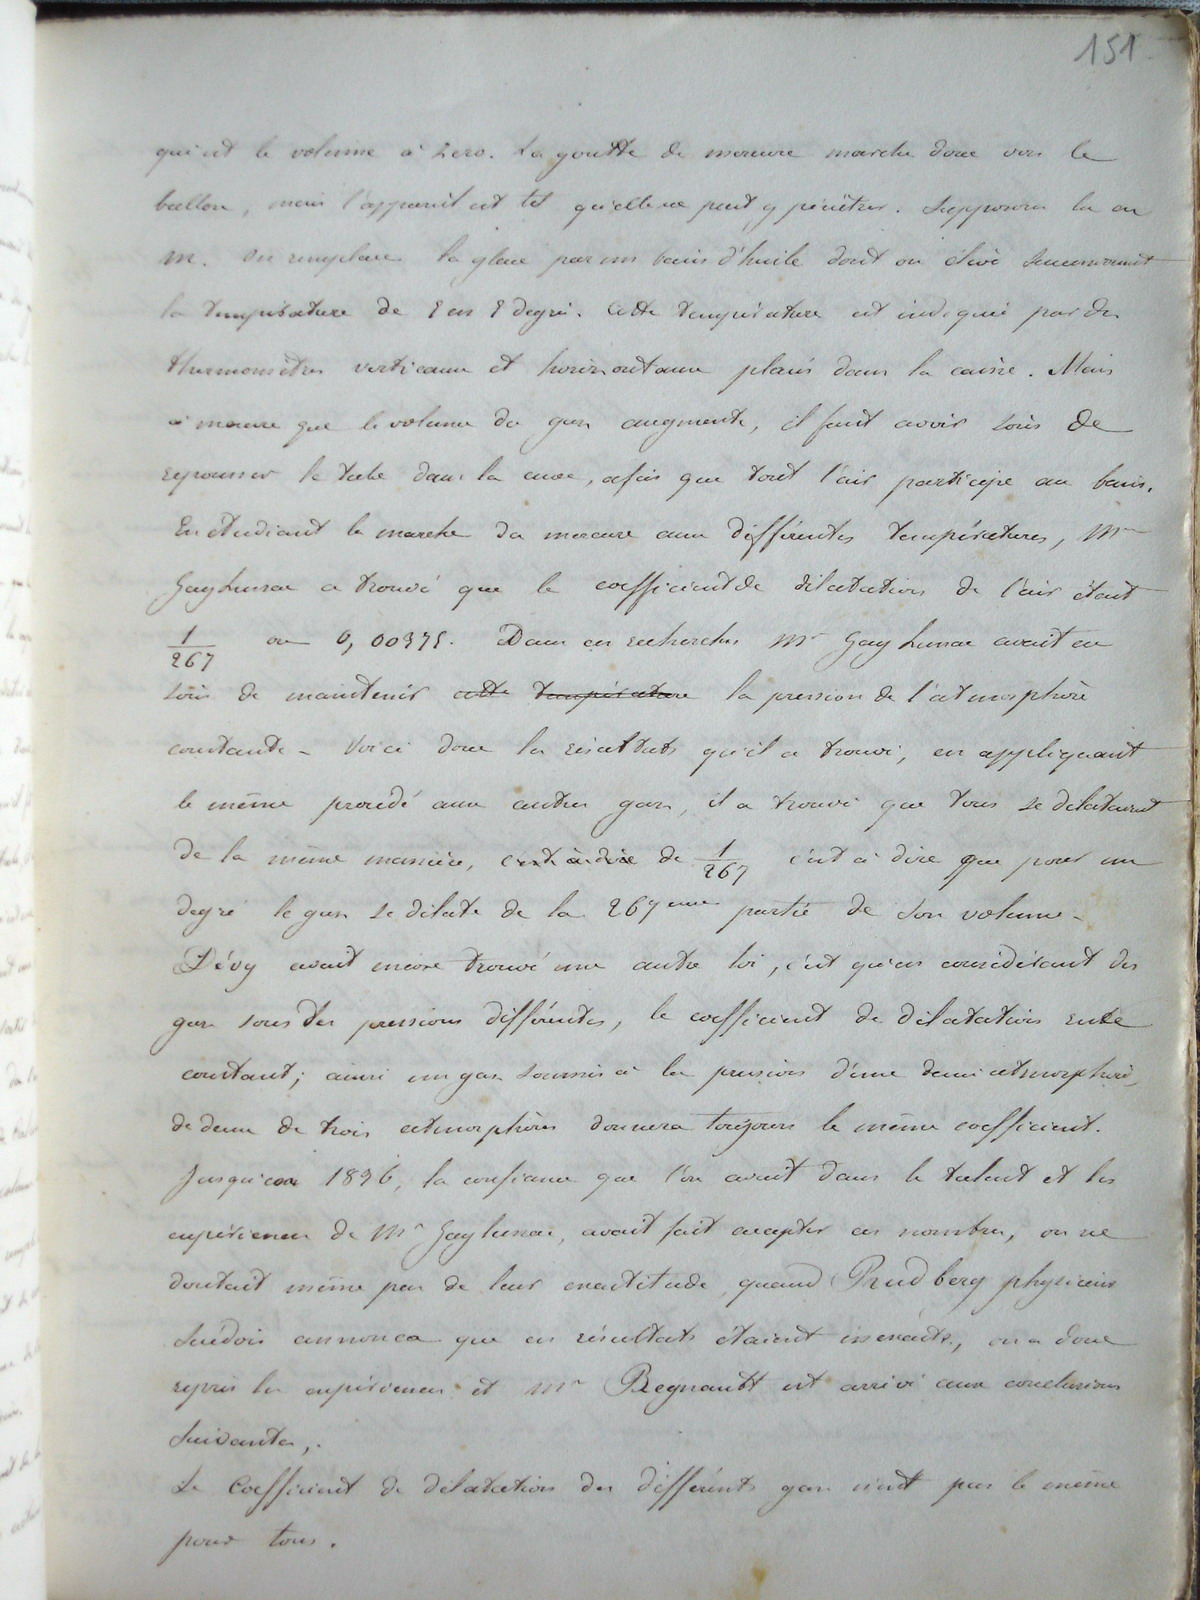 151
qui est le volume à zero. La goutte de mercure marche donc vers le
ballon, mais l'appareil est tel qu'elle ne peut y pénétrer. Supposons la en
m. On remplace la glace par un bain d'huile dont on élève successivement
la température de 5 en 5 degrés. Cette température est indiquée par des
thermomètres verticaux et horizontaux placés dans la caisse. Mais
à mesure que le volume du gaz augmente, il faut avoir soin de
repousser le tube dans la cuve, afin que tout l'air participe au bain.
En étudiant la marche du mercure aux différentes températures, Mr
Gay Lussac a trouvé que le coefficient de dilatation de l'air était
1/267 ou 0,00375. Dans ces recherches Mr Gay Lussac avait eu
soin de maintenir cette température la pression de l'atmosphère
constante – Voici donc les résultats qu'il a trouvé, en appliquant
le même procédé aux autres gaz, il a trouvé que tous se dilataient
de la même manière, c'est à dire de 1/267 c'est à dire que pour un
degré le gaz se dilate de la 267eme partie de son volume –
Dévy avait encore trouvé une autre loi, c'est qu'en considérant des
gaz sous des pressions différentes, le coefficient de dilatation reste
constant; ainsi un gaz soumis à la pression d'une demi atmosphère,
de deux de trois atmosphères donnera toujours le même coefficient.
Jusqu'en 1836, la confiance que l'on avait dans le talent et les
expériences de Mr Gay lussac, avait fait accepter ces nombres, on ne
doutait même pas de leur exactitude, quand Rudberg physicien
Suédois annonca que ces résultats étaient inexacts, on a donc
repris les expériences et Mr Regnault est arrivé aux conclusions
suivantes,.
Le Coefficient de dilatation des différents gaz n'est pas le même
pour tous.